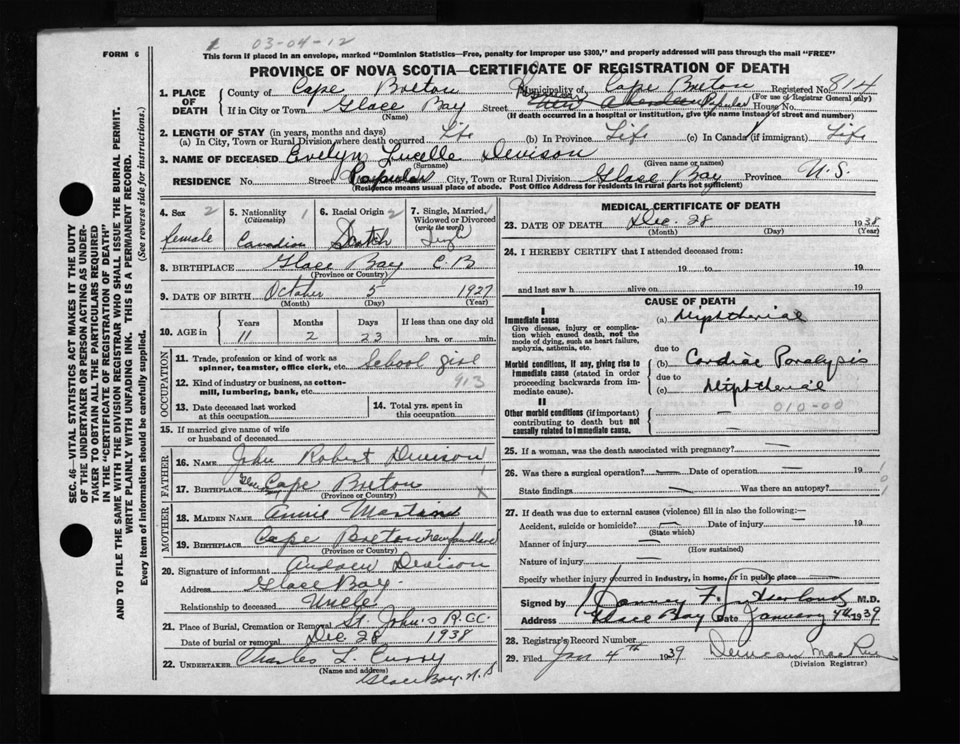 03-04-12
FORM 6
This form if placed in an envelope, marked "Dominion Statistics—Free, penalty for improper use $300," and properly addressed will pass through the mail "FREE"
PROVINCE OF NOVA SCOTIA—CERTIFICATE OF REGISTRATION OF DEATH
1. PLACE OF DEATH
County of Cape Breton Municipality of Cape Breton Registered No. 814
(For use of Registrar General only)
If in City or Town Glace Bay Street House No.
(Name) (If death occurred in a hospital or institution, give the name instead of street and number)
2. LENGTH OF STAY (in years, months and days)
(a) In City, Town or Rural Division where death occurred Life (b) In Province Life (c) In Canada (if immigrant) Life
3. NAME OF DECEASED Evelyn Lucelle Devison
(Surname) (Given name or names)
RESIDENCE No. Street City, Town or Rural Division Glace Bay Province N.S.
(Residence means usual place of abode. Post Office Address for residents in rural parts not sufficient)
4. Sex 2
female
5. Nationality 1
(Citizenship)
Canadian
6. Racial Origin 2
Scotch
7. Single, Married, Widowed or Divorced
(write the word)
Singl
8. BIRTHPLACE Glace Bay C.B
(Province or Country)
9. DATE OF BIRTH October 5 1927
(Month) (Day) (Year)
10. AGE in
Years Months Days If less than one day old
11 2 23 hrs. or min.
OCCUPATION
11. Trade, profession or kind of work as spinner, teamster, office clerk, etc. School girl
12. Kind of industry or business, as cotton-mill, lumbering, bank, etc. 913
13. Date deceased last worked at this occupation
14. Total yrs. spent in this occupation
15. If married give name of wife or husband of deceased
FATHER
16. NAME John Robert Devison
17. BIRTHPLACE Cape Breton
(Province or Country)
MOTHER
18. MAIDEN NAME Annie Martin
19. BIRTHPLACE Cape Breton Newfoundland
(Province or Country)
20. Signature of informant Andrew Devison
Address Glace Bay
Relationship to deceased Uncle
21. Place of Burial, Cremation or Removal St. John's R.C.C.
Date of burial or removal Dec 28 1938
22. UNDERTAKER Charles L Curry
(Name and address)
Glace Bay. N.S
MEDICAL CERTIFICATE OF DEATH
23. DATE OF DEATH Dec. 28 1938
(Month) (Day) (Year)
24. I HEREBY CERTIFY that I attended deceased from:
19 to 19
and last saw h alive on 19
CAUSE OF DEATH
I
Immediate cause
Give disease, injury or complication which caused death, not the mode of dying, such as heart failure, asphyxia, asthenia, etc.
(a) Diphtherial
due to
Morbid conditions, if any, giving rise to immediate cause (stated in order proceeding backwards from immediate cause).
(b) Cardiac Paralysis
due to
(c) Diphtherial
II
010-00
Other morbid conditions (if important) contributing to death but not causally related to immediate cause.
25. If a woman, was the death associated with pregnancy? —
26. Was there a surgical operation? — Date of operation — 19
State findings Was there an autopsy?
27. If death was due to external causes (violence) fill in also the following:—
Accident, suicide or homicide? — Date of injury — 19
(State which)
Manner of injury —
(How sustained)
Nature of injury —
Specify whether injury occurred in industry, in home, or in public place
Signed by Harvey F. Sutherland M.D.
Address Glace Bay Date January 4th 1939
28. Registrar's Record Number
29. Filed Jan 4th 1939 Duncan MacRae
(Division Registrar)
SEC. 46—VITAL STATISTICS ACT MAKES IT THE DUTY
OF THE UNDERTAKER OR PERSON ACTING AS UNDER-
TAKER TO OBTAIN ALL THE PARTICULARS REQUIRED
IN THE "CERTIFICATE OF REGISTRATION OF DEATH"
AND TO FILE THE SAME WITH THE DIVISION REGISTRAR WHO SHALL ISSUE THE BURIAL PERMIT.
WRITE PLAINLY WITH UNFADING INK. THIS IS A PERMANENT RECORD.
Every item of information should be carefully supplied. (See reverse side for instructions.)